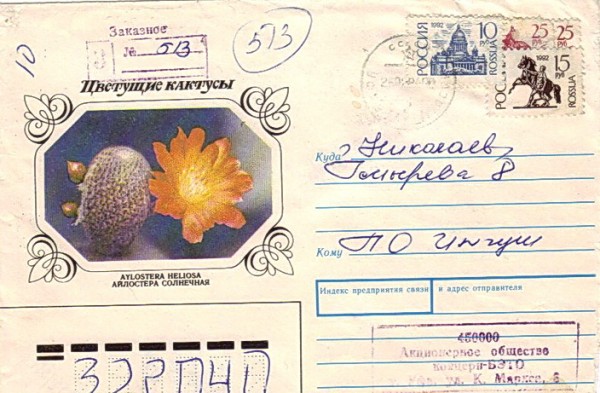 Заказное
№ 513
513
10
Цветущие кактусы
AYLOSTERA HELIOSA
АЙЛОСТЕРА СОЛНЕЧНАЯ
РОССИЯ
1992
10
руб
ROSSIJA
25 25
РОССИЯ
1992
15
руб
ROSSIJA
Куда г Николаев,
Кому ПО Ингул
Индекс предприятия связи и адрес отправителя
450000
Акционерное общество
концерн БЭТО
ул. К. Маркса, 6